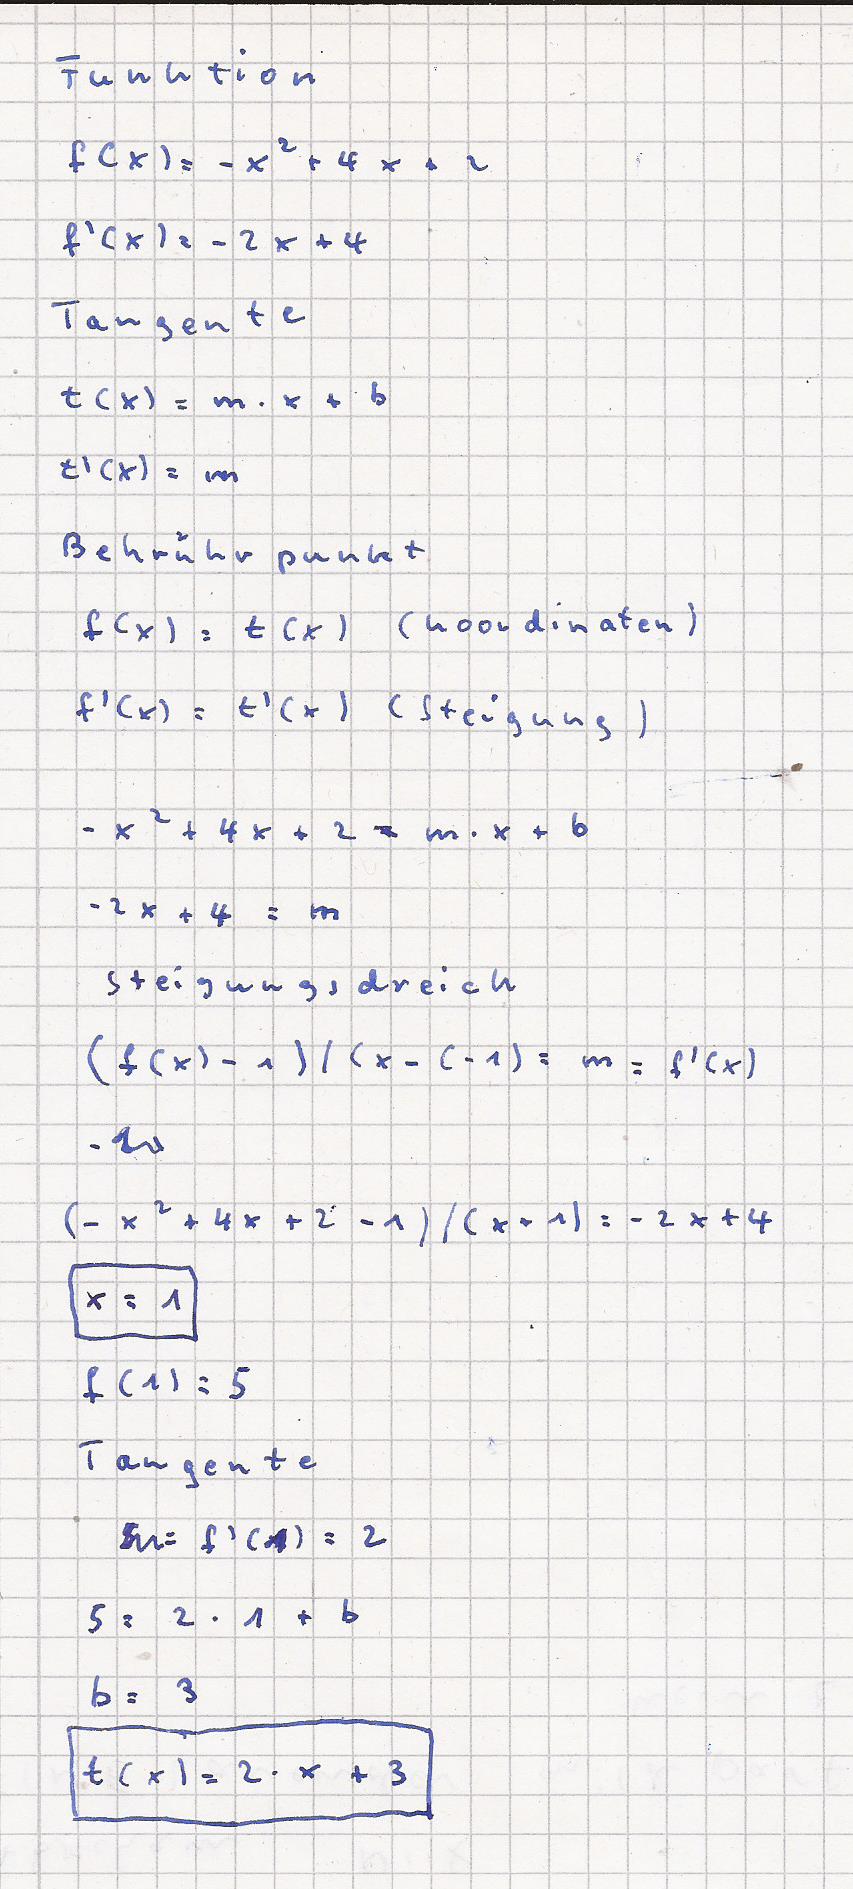 Funktion
f(x) = -x² + 4x + 2
f'(x) = -2x + 4
Tangente
t(x) = m · x + b
t'(x) = m
Behrührpunkt
f(x) = t(x) (Koordinaten)
f'(x) = t'(x) (Steigung)
-x² + 4x + 2 = m · x + b
-2x + 4 = m
Steigungsdreich
(f(x) - 1) / (x - (-1) = m = f'(x)
(-x² + 4x + 2 - 1) / (x + 1) = -2x + 4
x = 1
f(1) = 5
Tangente
m = f'(1) = 2
5 = 2 · 1 + b
b = 3
t(x) = 2 · x + 3